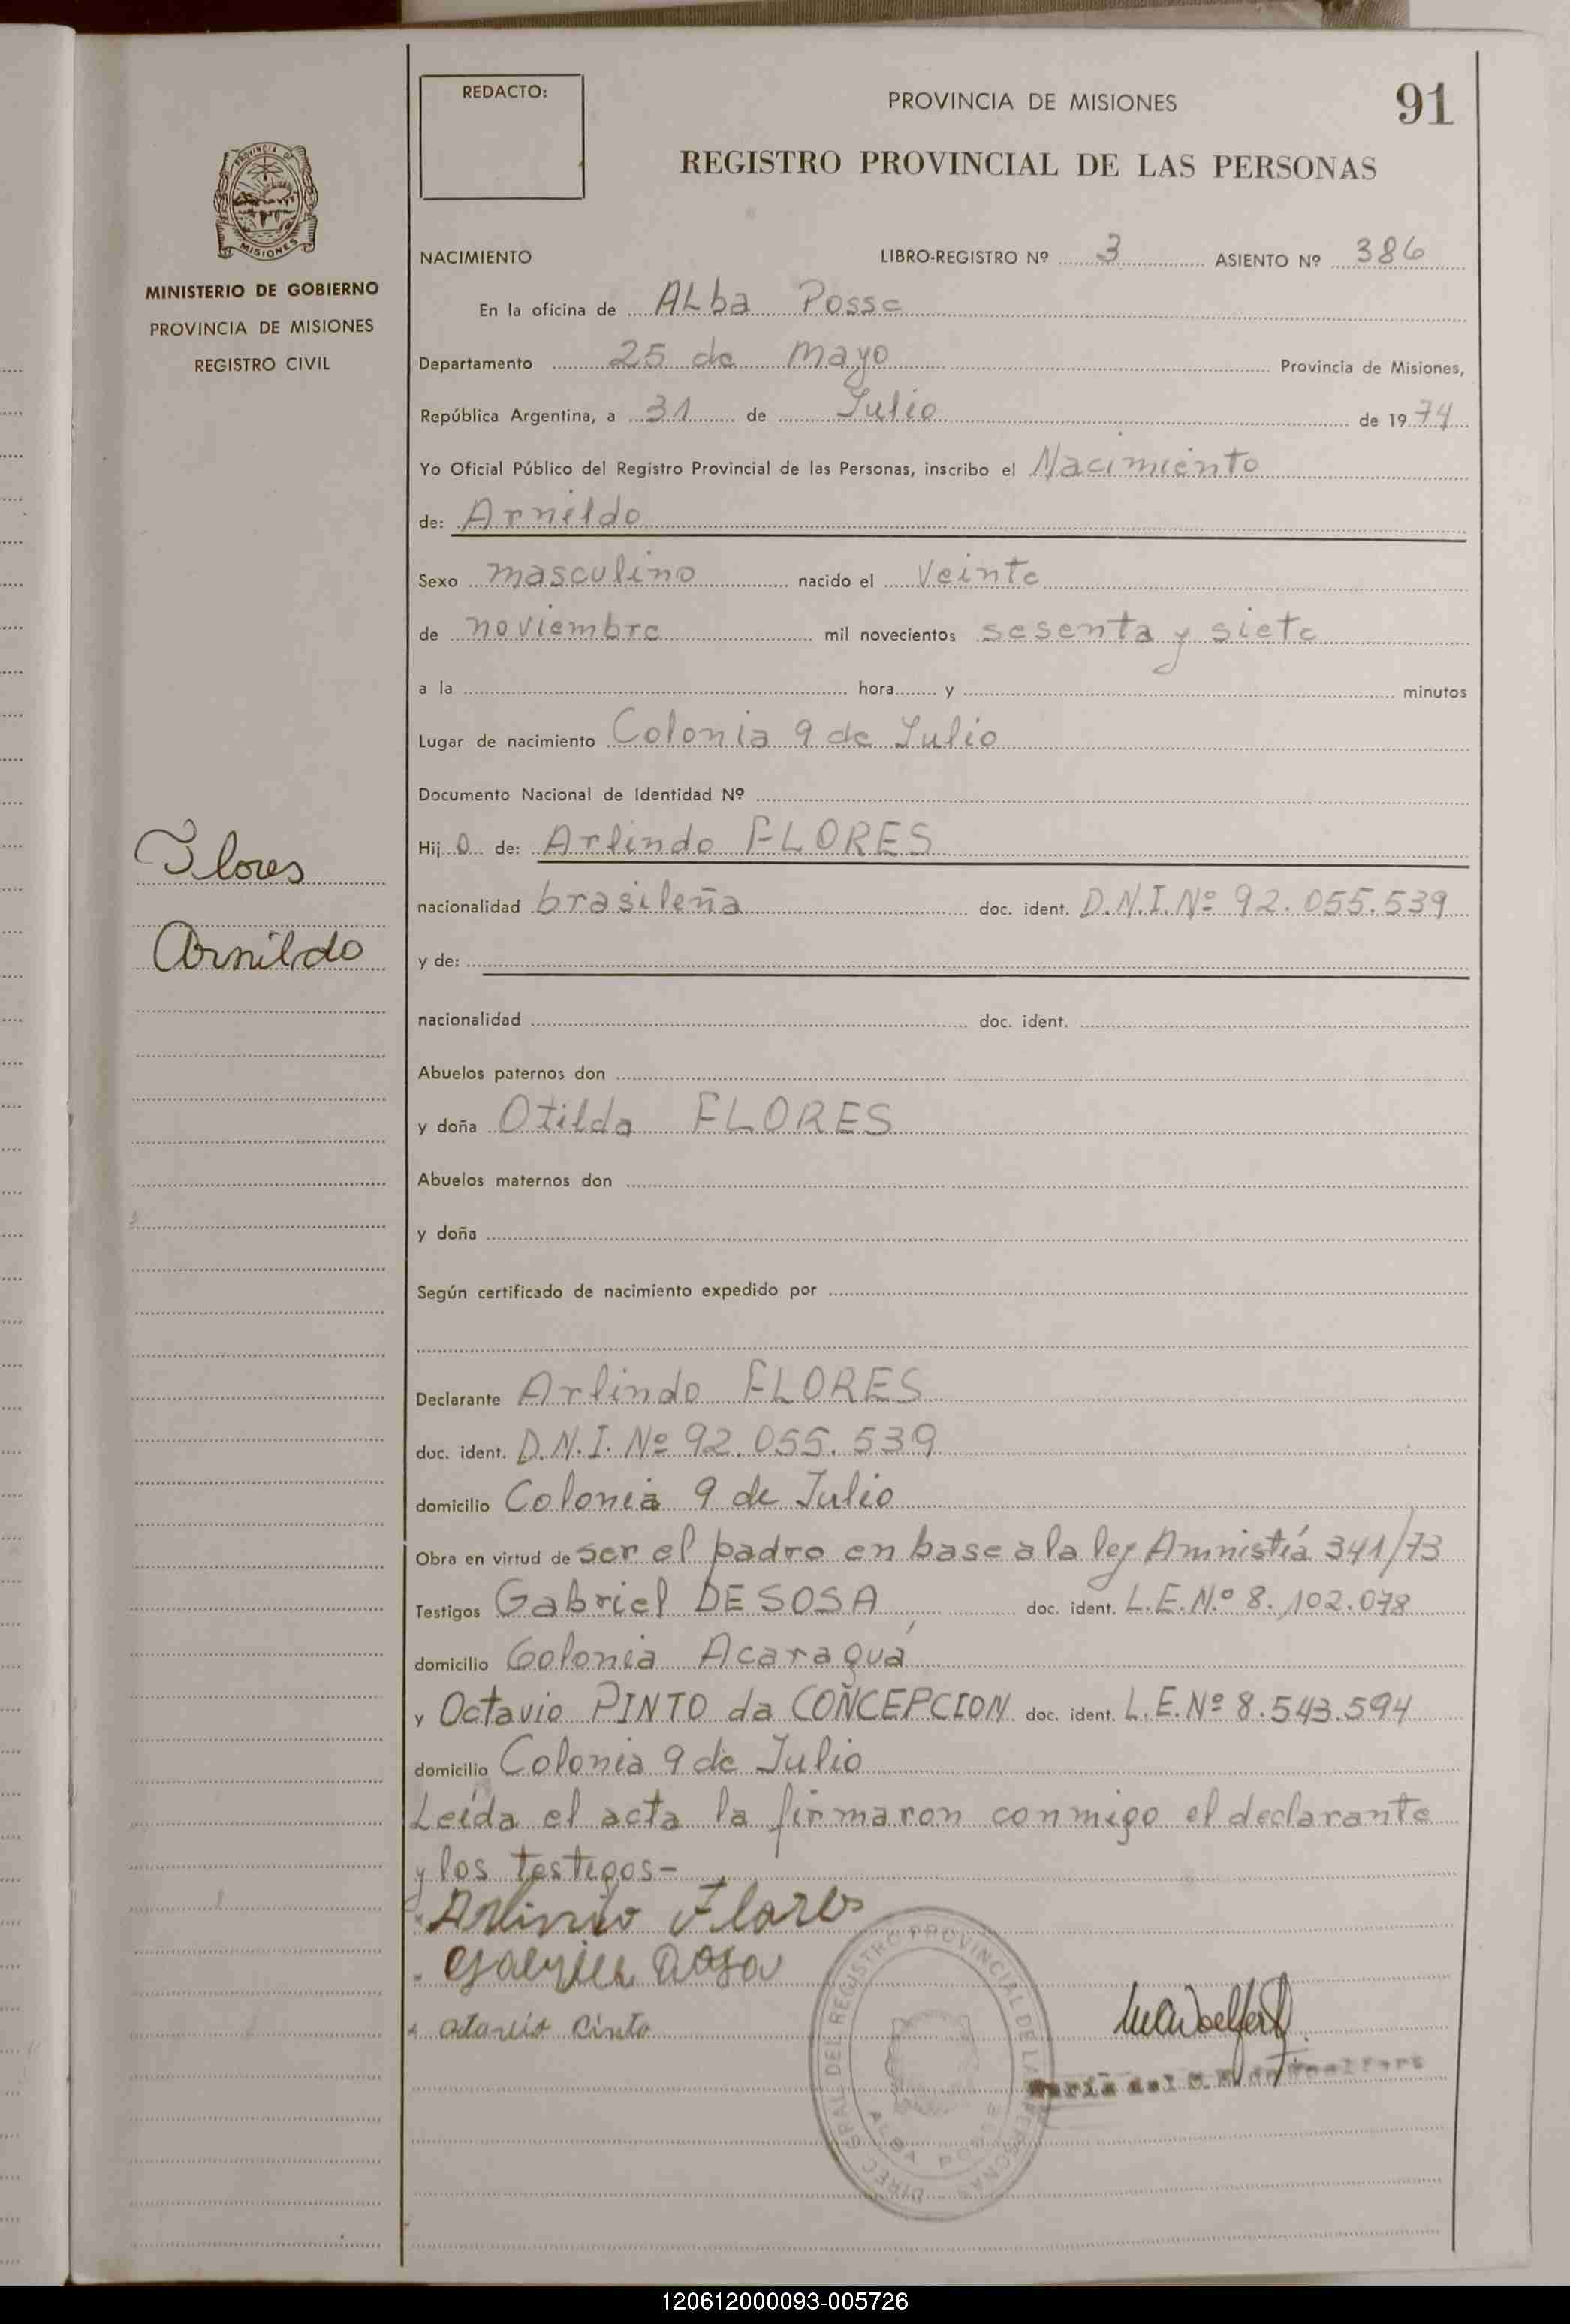 REDACTO:
PROVINCIA DE MISIONES
91
REGISTRO PROVINCIAL DE LAS PERSONAS
PROVINCIA DE
MISIONES
MINISTERIO DE GOBIERNO
PROVINCIA DE MISIONES
REGISTRO CIVIL
NACIMIENTO LIBRO-REGISTRO Nº 3 ASIENTO Nº 386
En la oficina de Alba Posse
Departamento 25 de Mayo Provincia de Misiones,
República Argentina, a 31 de Julio de 1974
Yo Oficial Público del Registro Provincial de las Personas, inscribo el Nacimiento
de: Arnildo
Sexo masculino nacido el Veinte
de noviembre mil novecientos sesenta y siete
a la hora y minutos
Lugar de nacimiento Colonia 9 de Julio
Documento Nacional de Identidad Nº
Flores
Arnildo
Hijo de: Arlindo FLORES
nacionalidad brasileña doc. ident. D.N.I. Nº 92.055.539
y de:
nacionalidad doc. ident.
Abuelos paternos don
y doña Otilda FLORES
Abuelos maternos don
y doña
Según certificado de nacimiento expedido por
Declarante Arlindo FLORES
doc. ident. D.N.I. Nº 92.055.539
domicilio Colonia 9 de Julio
Obra en virtud de ser el padre en base a la ley Amnistiá 341/73
Testigos Gabriel DE SOSA doc. ident. L.E.N.º 8.102.078
domicilio Colonia Acaraguá
y Octavio PINTO da COÑCEPCION doc. ident. L.E.Nº 8.543.594
domicilio Colonia 9 de Julio
Leída el acta la firmaron conmigo el declarante
y los testigos-
Arlindo Flores
DIREC. GRAL. DEL REGISTRO PROVINCIAL DE LAS PERSONAS
ALBA POSSE
120612000093-005726